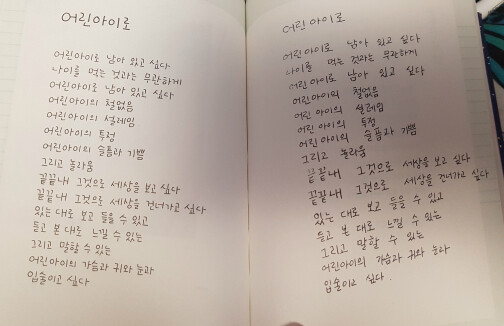 어린아이로
어린아이로 남아 있고 싶다
나이를 먹는 것과는 무관하게
어린아이로 남아 있고 싶다
어린아이의 철없음
어린아이의 설레임
어린아이의 투정
어린아이의 슬픔과 기쁨
그리고 놀라움
끝끝내 그것으로 세상을 보고 싶다
끝끝내 그것으로 세상을 건너가고 싶다
있는 대로 보고 들을 수 있고
듣고 본 대로 느낄 수 있는
그리고 말할 수 있는
어린아이의 가슴과 귀와 눈과
입술이고 싶다
어린아이로
어린아이로 남아 있고 싶다
나이를 먹는 것과는 무관하게
어린아이로 남아 있고 싶다
어린아이의 철없음
어린아이의 설레임
어린아이의 투정
어린아이의 슬픔과 기쁨
그리고 놀라움
끝끝내 그것으로 세상을 보고 싶다
끝끝내 그것으로 세상을 건너가고 싶다
있는 대로 보고 들을 수 있고
듣고 본 대로 느낄 수 있는
그리고 말할 수 있는
어린아이의 가슴과 귀와 눈과
입술이고 싶다.